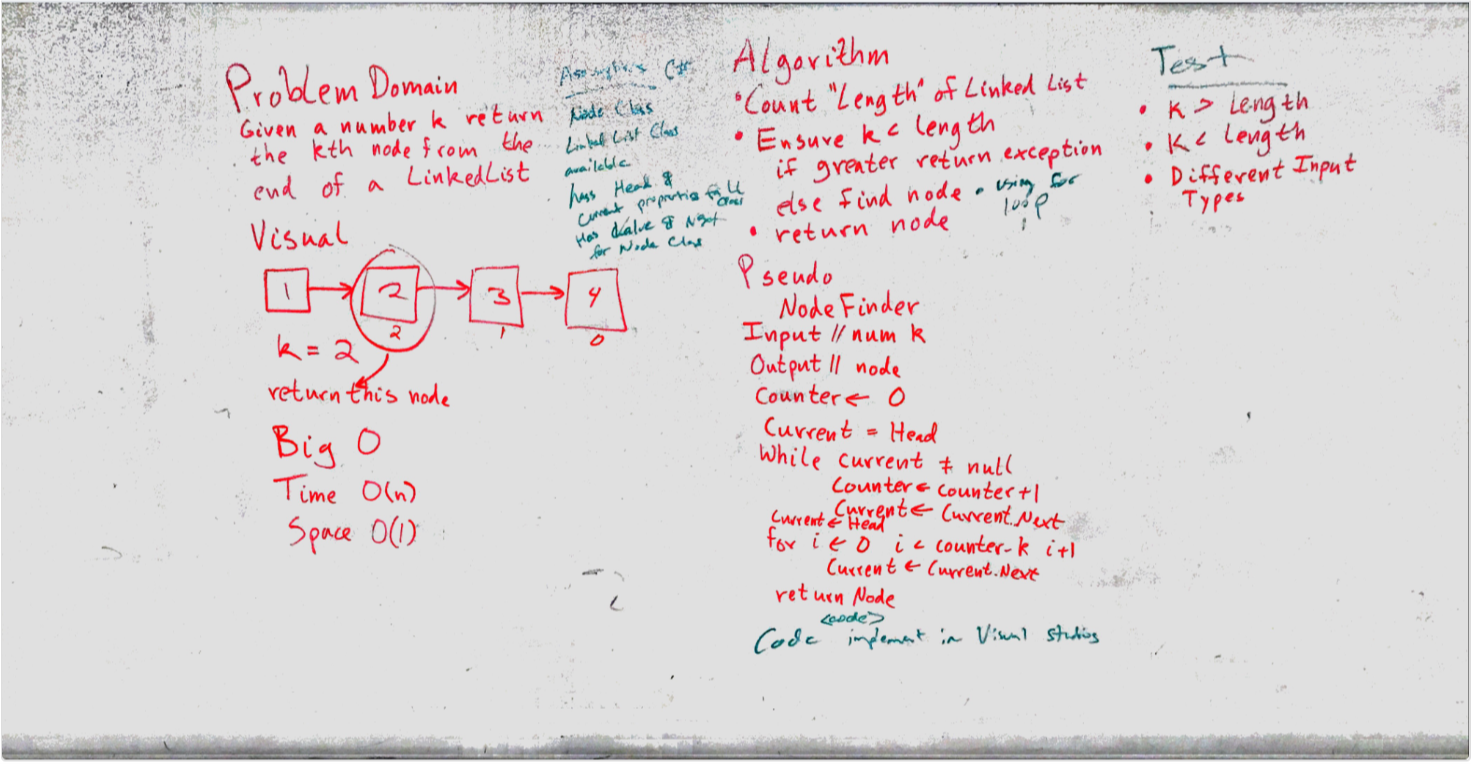 Problem Domain
Given a number k return
the kth node from the
end of a LinkedList
Visual
1 2 3 4
2 1 0
k = 2
return this node
Big O
Time O(n)
Space O(1)
C#
Node Class
Linked List Class
available
has Head &
Current properties for LL
Class
Has Value & Next
for Node Class
Algorithm
• Count "Length" of Linked List
• Ensure k < length
if greater return exception
else find node • using for
loop
• return node
Pseudo
NodeFinder
Input // num k
Output // node
Counter ← 0
Current = Head
While current ≠ null
Counter ← counter+1
Current ← Current.Next
Current ← Head
for i ← 0 i < counter-k i+1
Current ← Current.Next
return Node
<code>
Code implement in Visual Studios
Test
• K > Length
• K < Length
• Different Input
Types